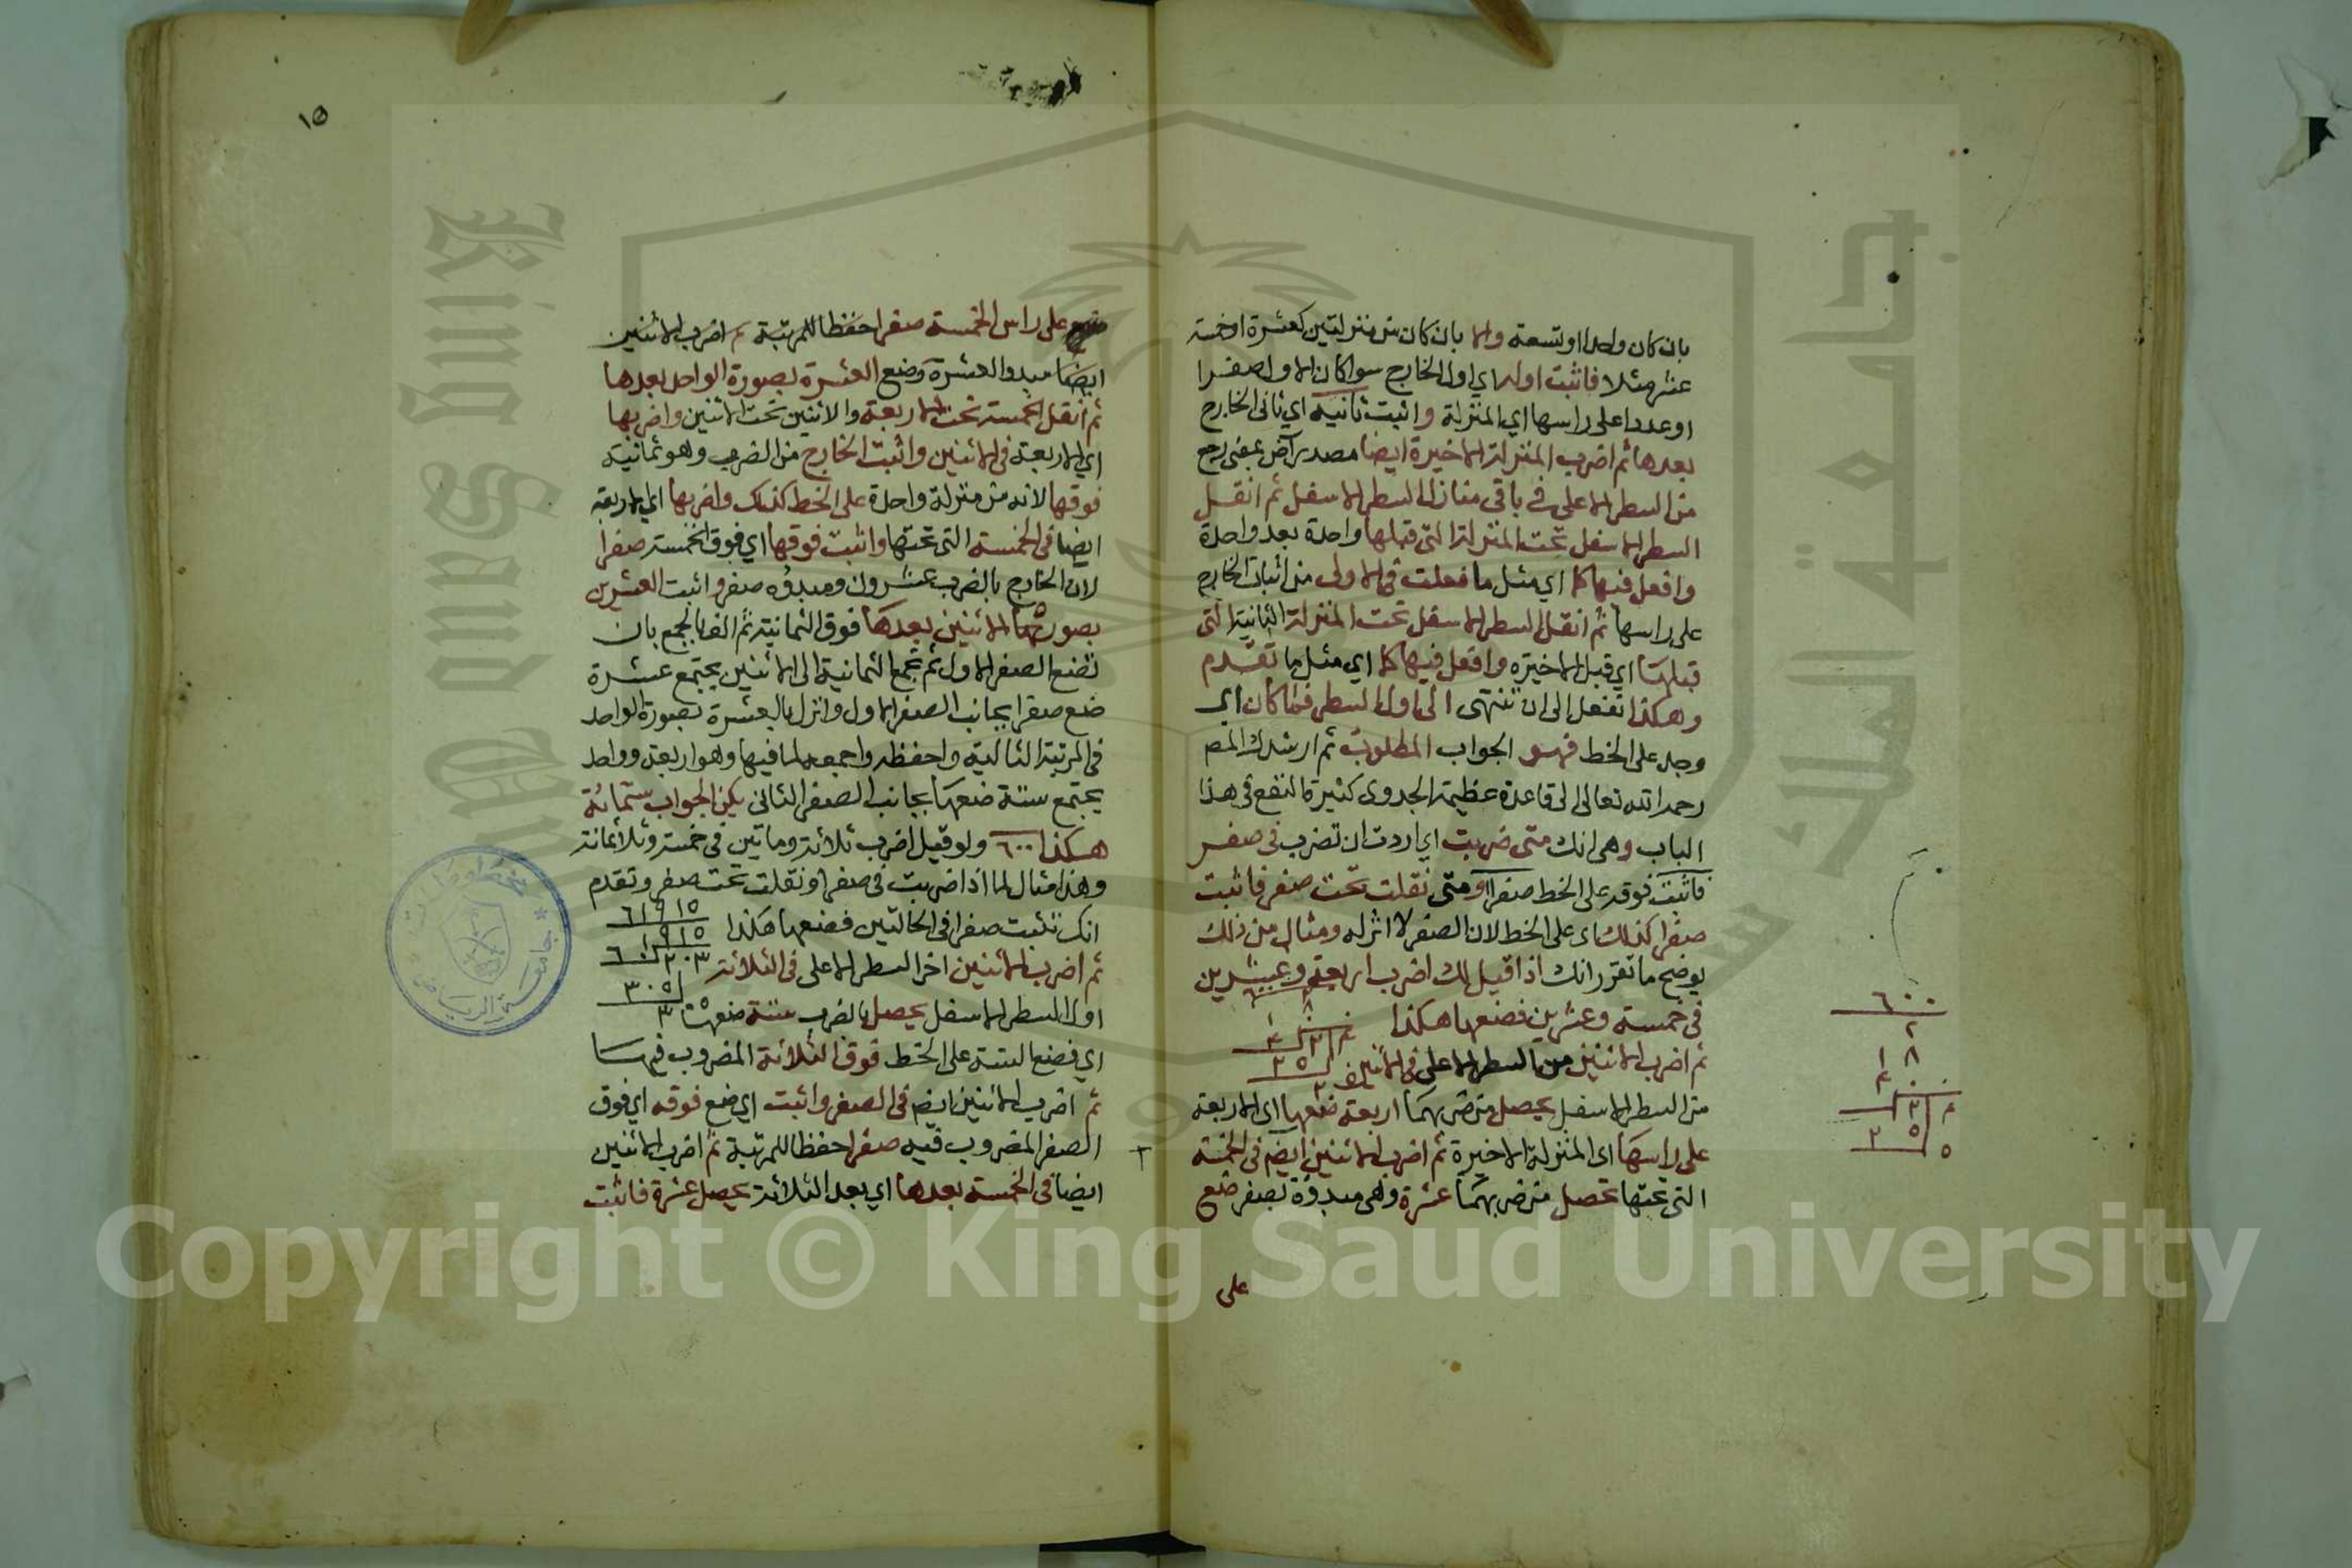 بان كان واحدا او تسعة والا بان كان من منزلتين كعشرة او خمسة
عشر مثلا فاثبت اوله اي اول الخارج سوا كان الاول صفرا
او عددا على راسها اي المنزلة واثبت ثانيه اي ثاني الخارج
بعدها ثم اضرب المنزلة الاخيرة ايضا مصدر آض بمعنى رجع
من السطر الاعلى في باقي منازل السطر الاسفل ثم انقل
السطر الاسفل تحت المنزلة التي قبلها واحدة بعد واحدة
وافعل فيها كما اي مثل ما فعلت في الاولى من اثبات الخارج
على راسها ثم انقل السطر الاسفل تحت المنزلة الثانية التي
قبلها اي قبل الاخيرة وافعل فيها كما اي مثل ما تقدم
وهكذا تفعل الى ان تنتهى الى اول السطر فما كان اي
وجد على الخط فهو الجواب المطلوب ثم ارشدك المص
رحمه الله تعالى الى قاعدة عظيمة الجدوى كثيرة النفع في هذا
الباب وهي انك متى ضربت اي اردت ان تضرب في صفر
فاثبت فوقه على الخط صفرا ومتى نقلت تحت صفر فاثبت
صفرا كذلك اي على الخط لان الصفر لا اثر له ومثال من ذلك
يوضح ما تقرر انك اذا قيل لك اضرب اربعة وعشرين
في خمسة وعشرين فضعها هكذا
ثم اضرب الاثنين من السطر الاعلى في الاثنين
من السطر الاسفل يحصل من ضربهما اربعة ضعها اي الاربعة
على راسها اي المنزلة الاخيرة ثم اضرب الاثنين ايض في الخمسة
التي تحتها تحصل من ضربهما عشرة وهي مبدوة بصفر ضع
على
٦٠٠
٢
٨ ١
٢٥
٥
١٥
على راس الخمسة صفرا حفظا للمرتبة ثم اضرب الاثنين
ايضا مبدو العشرة وضع العشرة بصورة الواحد بعدها
ثم انقل الخمسة تحت الاربعة والاثنين تحت الاثنين واضربها
اي الاربعة في الاثنين واثبت الخارج من الضرب وهو ثمانية
فوقها لانه من منزلة واحدة على الخط كذلك واضربها اي الاربعة
ايضا في الخمسة التي تحتها واثبت فوقها اي فوق الخمسة صفرا
لان الخارج بالضرب عشرون ومبدؤه صفر واثبت العشرين
بصورتهما الاثنين بعدها فوق الثمانية ثم الف بالجمع بان
تضع الصفر الاول ثم تجمع الثمانية الى الاثنين يجتمع عشرة
ضع صفرا بجانب الصفر الاول وانزل بالعشرة بصورة الواحد
في المرتبة الثالثة واحفظه واجمعه لما فيها وهو اربعة وواحد
يجتمع ستة ضعها بجانب الصفر الثاني يكن الجواب ستمائة
هكذا ٦٠٠ ولو قيل اضرب ثلاثة وماتين في خمسة وثلاثمائة
وهذا مثال لما اذا ضربت في صفر او نقلت تحت صفر وتقدم
انك تثبت صفرا في الحالتين فضعها هكذا
٦١٩١٥
ثم اضرب الاثنين اخر السطر الاعلى في الثلاثة
٣٠٥
اول السطر الاسفل يحصل بالضرب ستة ضعها
اي فضع الستة على الخط فوق الثلاثة المضروب فيها
ثم اضرب الاثنين ايض في الصفر واثبت اي ضع فوقه اي فوق
الصفر المضروب فيه صفرا حفظا للمرتبة ثم اضرب الاثنين
ايضا في الخمسة بعدها اي بعد الثلاثة يحصل عشرة فاثبت
King Saud University
جامعة الملك سعود
Copyright © King Saud University